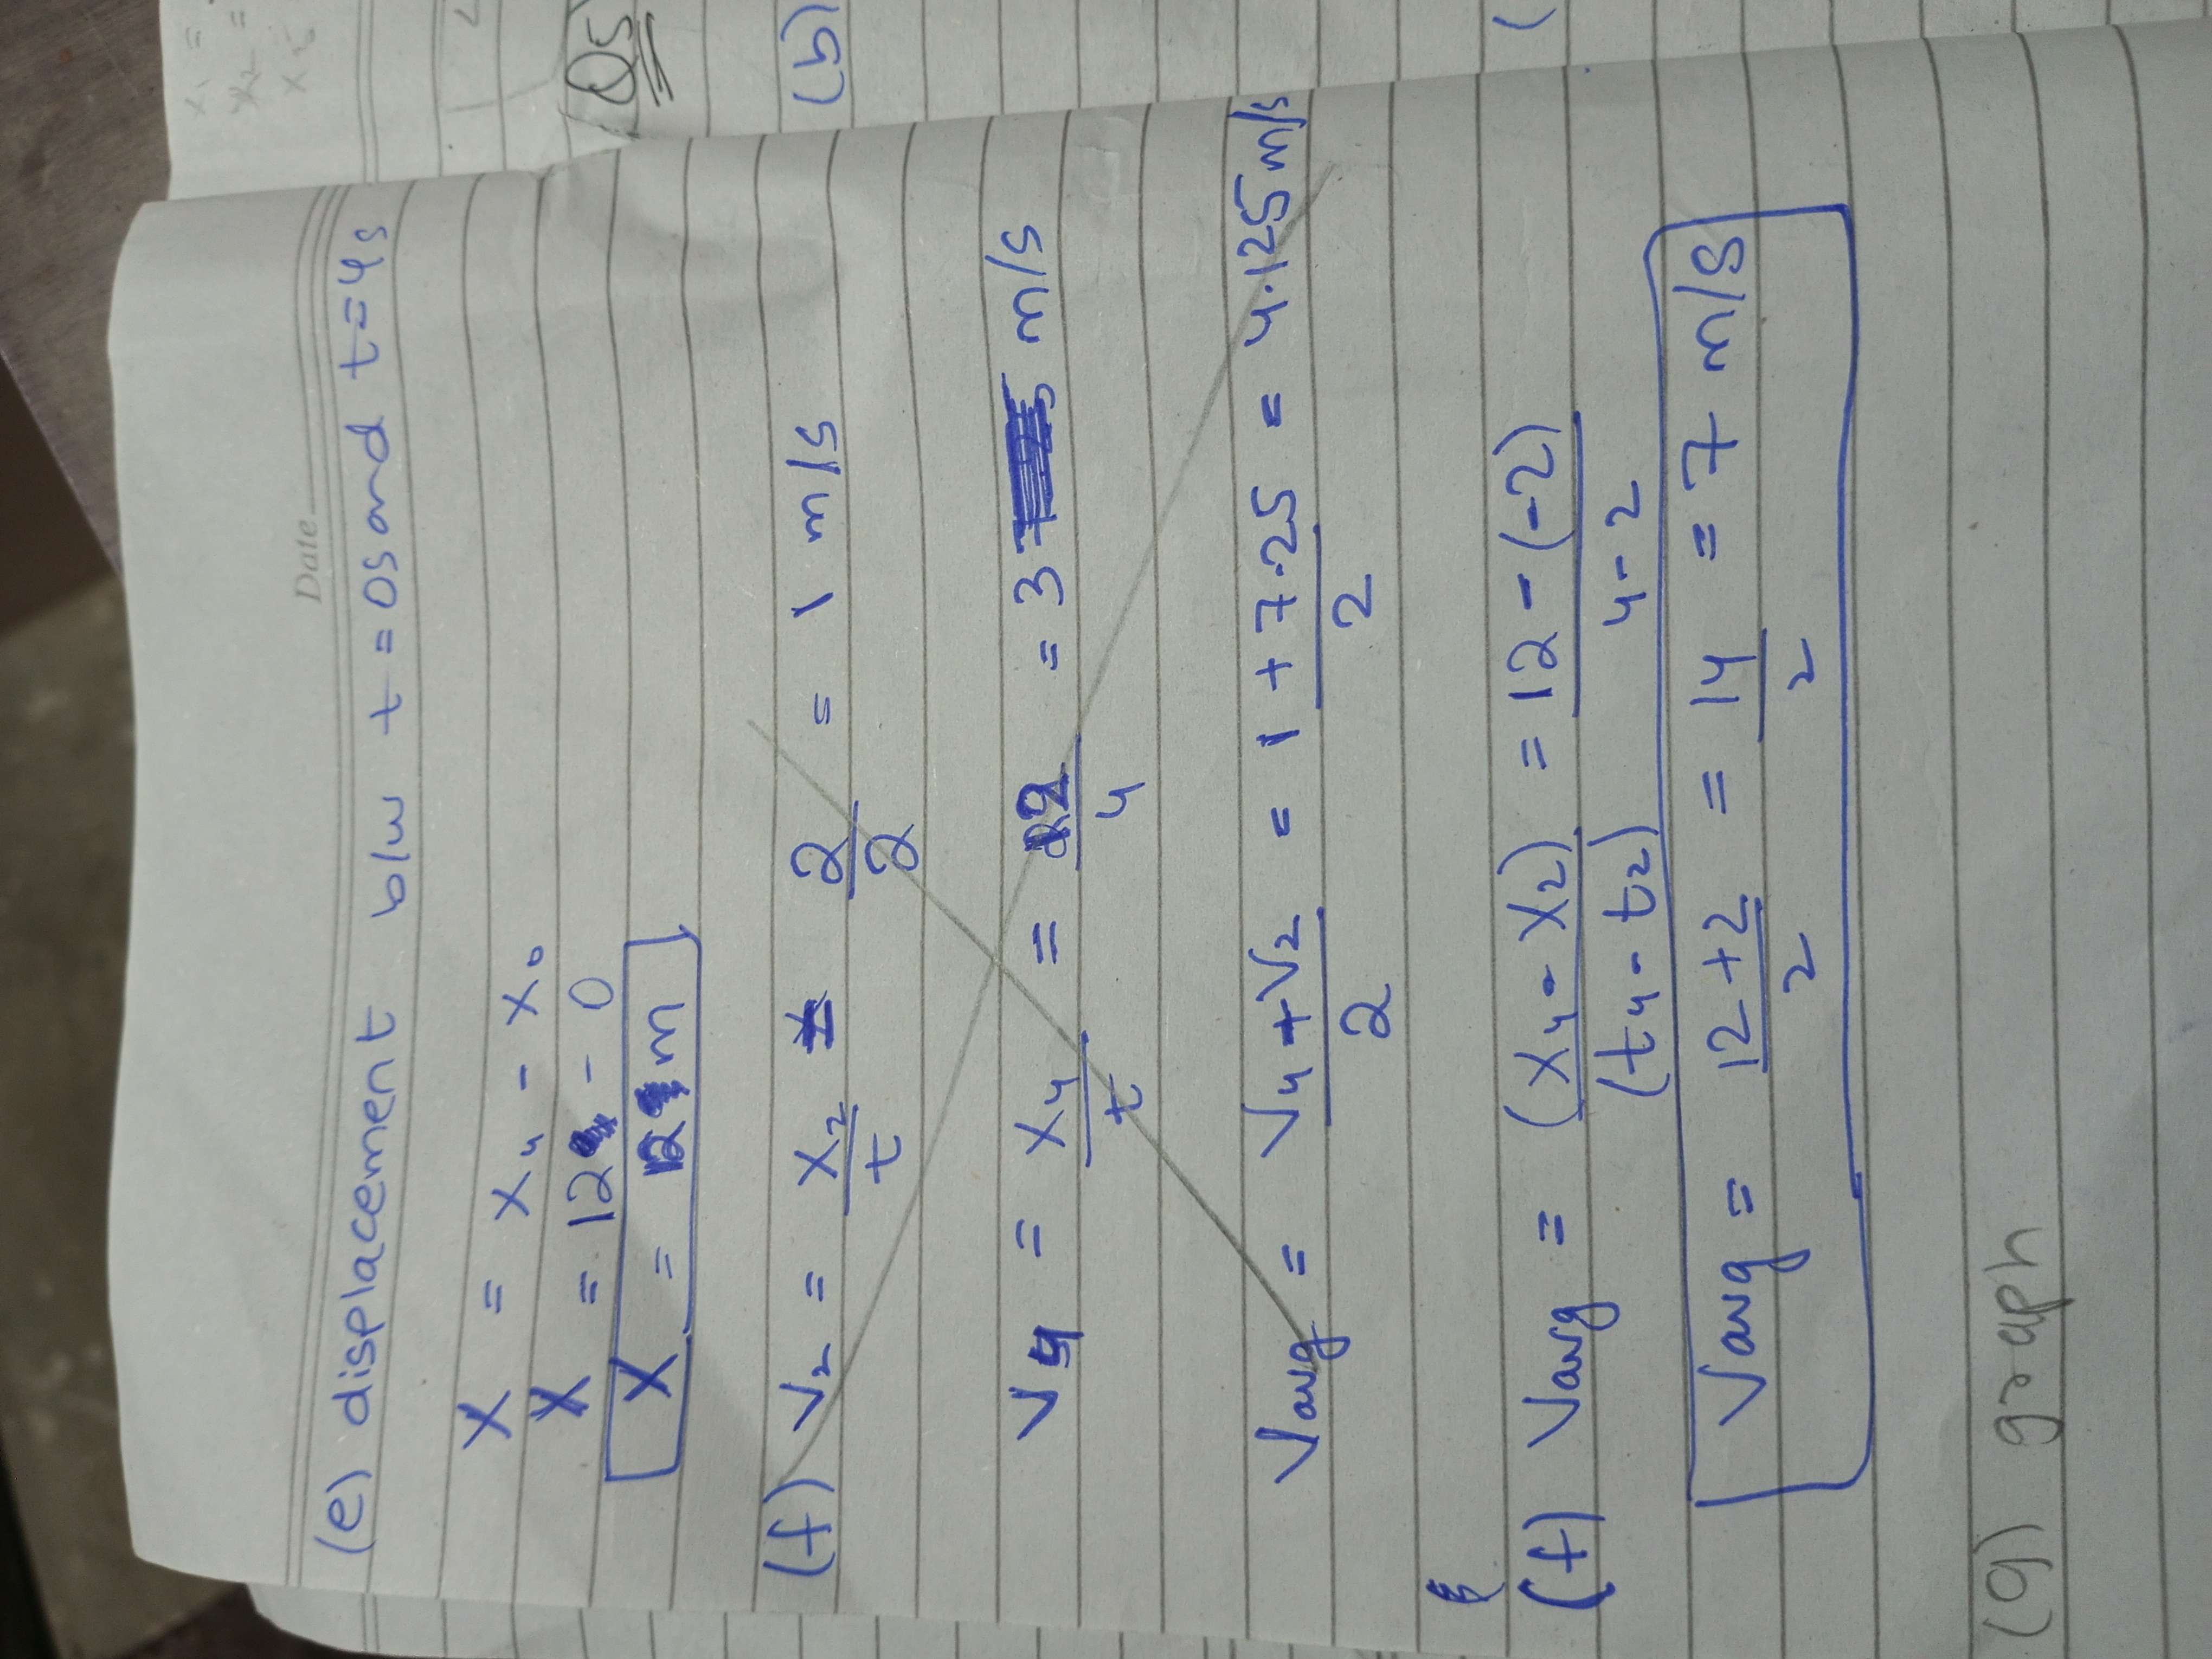 Date
(e) displacement b/w t = 0s and t = 4s
X = X₄ - X₀
X = 12 - 0
X = 12 m
(f) V₂ = X₂/t = 2/2 = 1 m/s
V₄ = X₄/t = /4 = 3 m/s
Vavg = V₄ + V₂ / 2 = 1 + 7.25 / 2 = 4.125 m/s
(f) Vavg = (X₄ - X₂) / (t₄ - t₂) = 12 - (-2) / 4 - 2
Vavg = 12 + 2 / 2 = 14 / 2 = 7 m/s
(g) graph
X₁ =
X₂ =
Q5
(b)